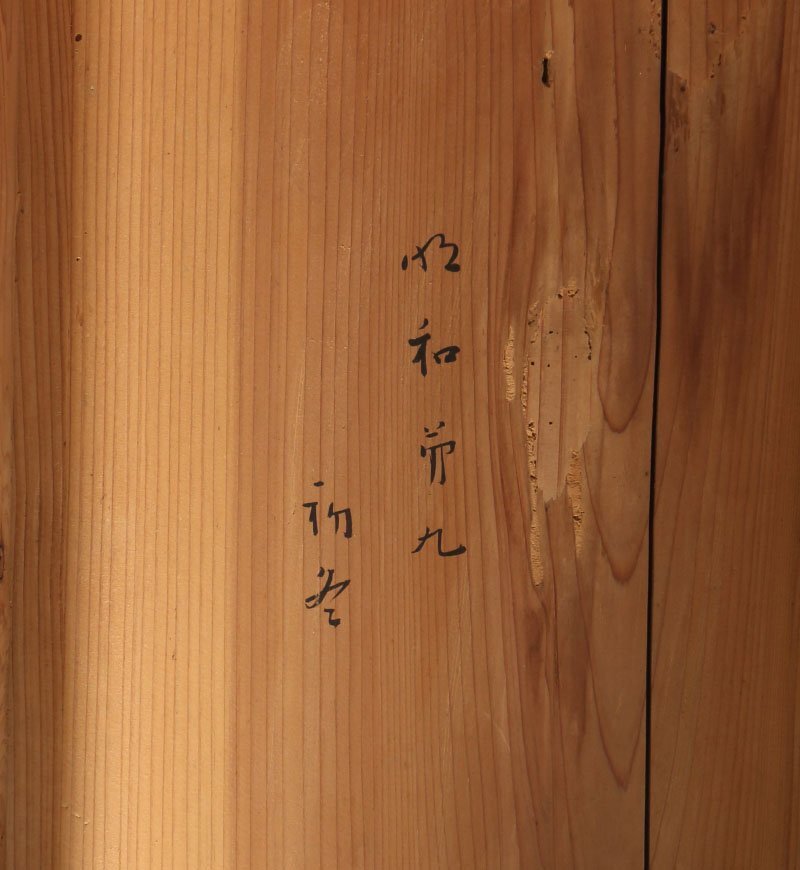 明和第九
初冬